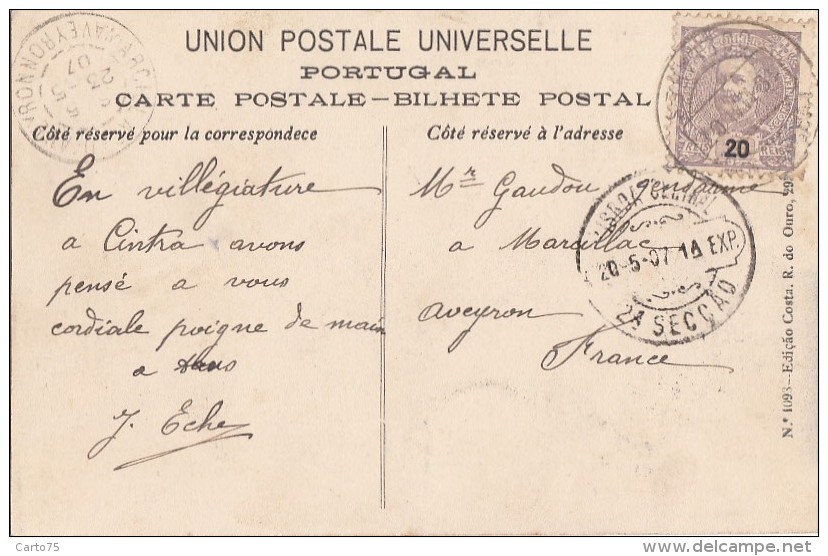 UNION POSTALE UNIVERSELLE
PORTUGAL
CARTE POSTALE — BILHETE POSTAL
Côté réservé pour la correspondece
Côté réservé à l'adresse
En villégiature
a Cintra avons
pensé a vous
cordiale poigne de main
a
J. Eche
Mr Gaudou gendarme
a Marcillac
Aveyron
France
20
20-5-07 EXP.
2ª SECÇÃO
AVEYRON
23
07
N.º 1093 - Edição Costa. R. do Ouro, 29
Carto75
www.delcampe.net